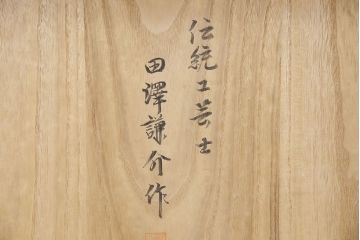 伝統工芸士
田澤謙介作